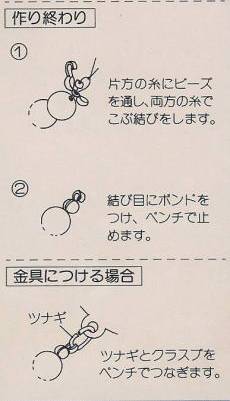 作り終わり
①
片方の糸にビーズ
を通し、両方の糸で
こぶ結びをします。
②
結び目にボンドを
つけ、ペンチで止
めます。
金具につける場合
ツナギ
ツナギとクラスプを
ペンチでつなぎます。